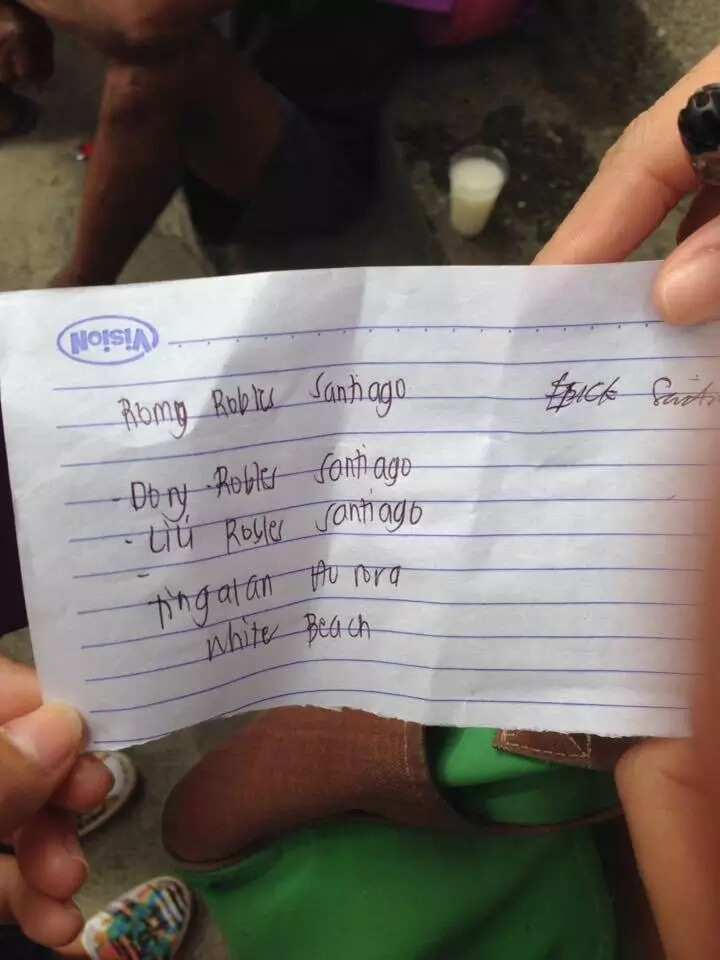 VISION
Romy Robles Santiago
- Dony Robles Santiago
- Lili Robles Santiago
-
Tingalan Aurora
White Beach